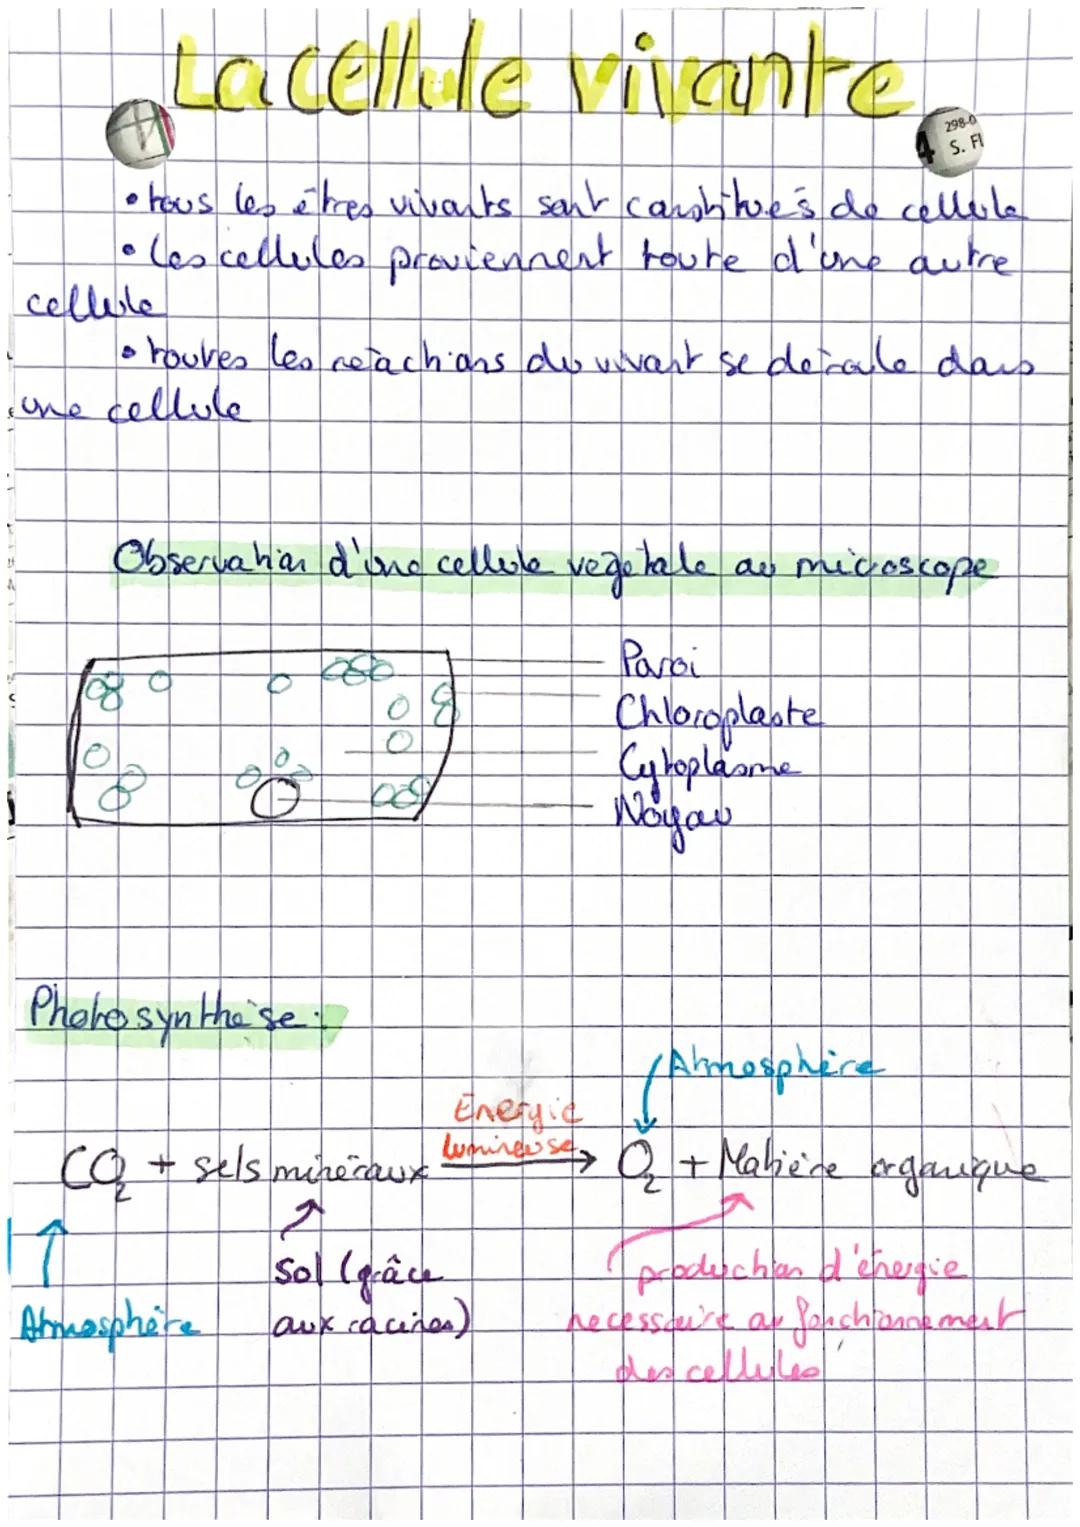 La cellule vivante
298-0
4 S. Fl
• tous les êtres vivants sont constitués de cellule
• les cellules proviennent toute d'une autre
cellule
• toutes les réactions du vivant se déroule dans
une cellule
Observation d'une cellule végétale au microscope
Paroi
Chloroplaste
Cytoplasme
Noyau
Photosynthèse :
Atmosphère
Energie
lumineuse
CO₂ + sels minéraux → O₂ + Matière organique
Sol (grâce
aux racines)
Atmosphère
production d'énergie
necessaire au fonctionnement
des cellules